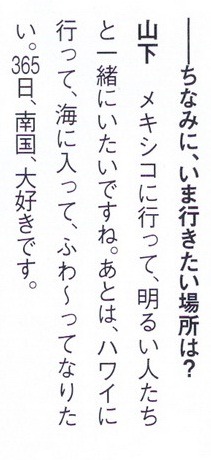 ――ちなみに、いま行きたい場所は?
山下　メキシコに行って、明るい人たち
と一緒にいたいですね。あとは、ハワイに
行って、海に入って、ふわ〜ってなりた
い。365日、南国、大好きです。